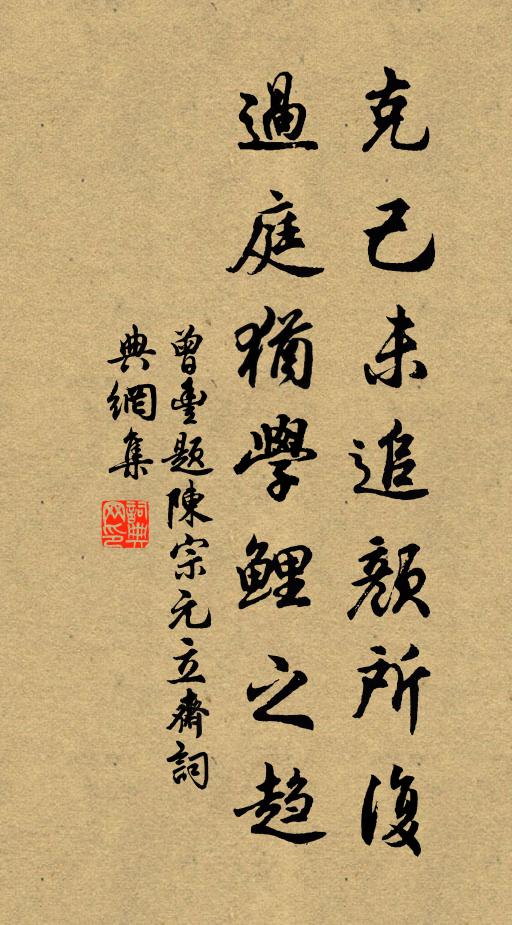 克己未追顏所復
過庭猶學鯉之趨
曾豐題陳宗元立齋詞
典網集
詞典
网印